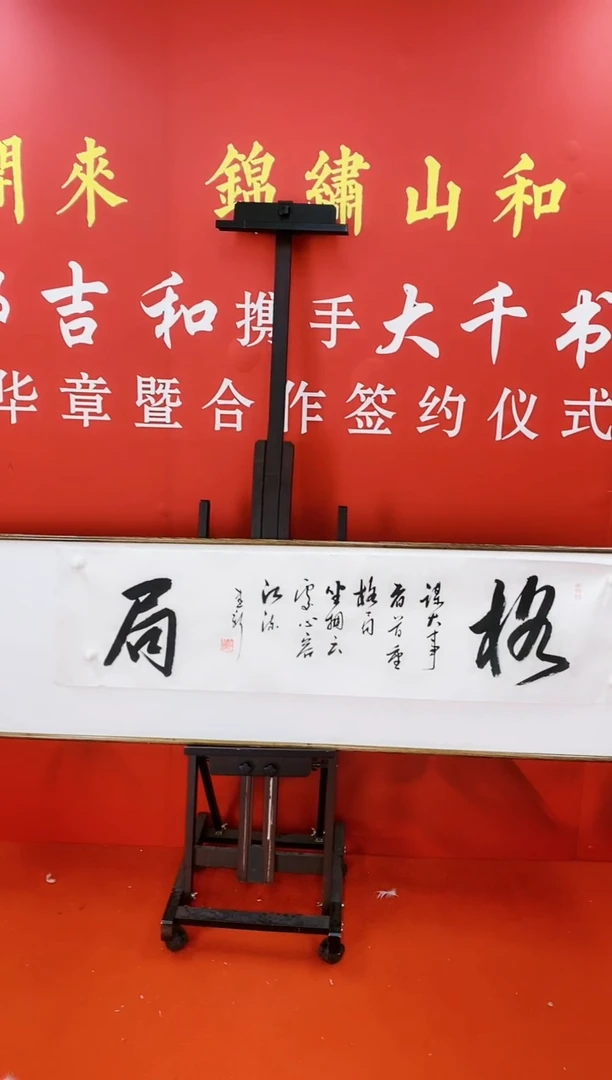 開來 錦繡山和
吉和携手大千书
华章暨合作签约仪式
格
谋大事
者首重
格局
坐拥云
處心容
江流
局